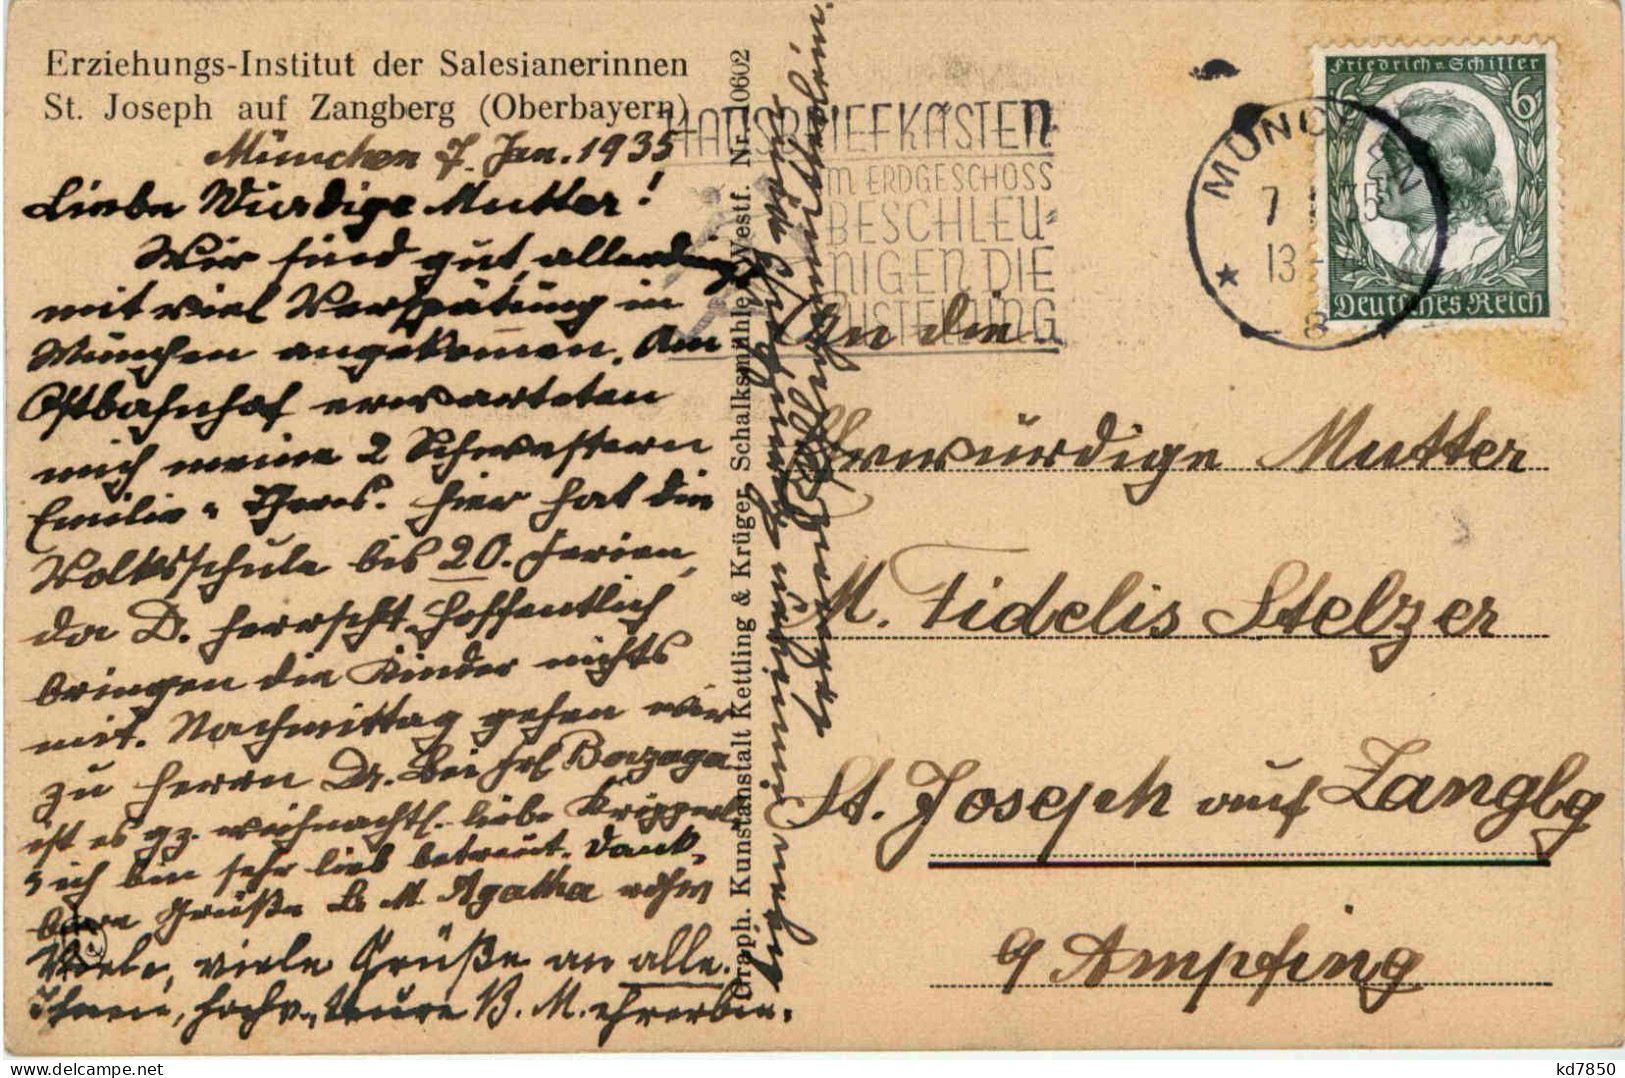 Erziehungs-Institut der Salesianerinnen
St. Joseph auf Zangberg (Oberbayern)
München 7. Jan. 1935
Liebe Würdige Mutter!
Wir sind gut, allerdings
mit viel Verspätung in
München angekommen. Am
Ostbahnhof erwarteten
mich meine 2 Schwestern
Emilie u. Theres. Hier hat die
Volksschule bis 20. Ferien,
da D. herrscht. Hoffentlich
bringen die Kinder nichts
mit. Nachmittag gehen wir
zu Herrn Dr. Bei Frl
ist es gz. weihnachtl. liebe Kripperl
ich bin sehr lieb betreut. Dank-
bare Grüße M. Agatha
Viele, viele Grüße an alle.
Ihnen, hochw. teure B. M.
Graph. Kunstanstalt Kettling & Krüger, Schalksmühle i. Westf. Nr. 10602
HAUSBRIEFKÄSTEN
IM ERDGESCHOSS
BESCHLEU-
NIGEN DIE
ZUSTELLUNG
MÜNCHEN
7 1 35
13
8
Friedrich v. Schiller
6 6
Deutsches Reich
An die
Ehrwürdige Mutter
M. Fidelis Stelzer
St. Joseph auf Zangbg
b/ Ampfing
kd7850